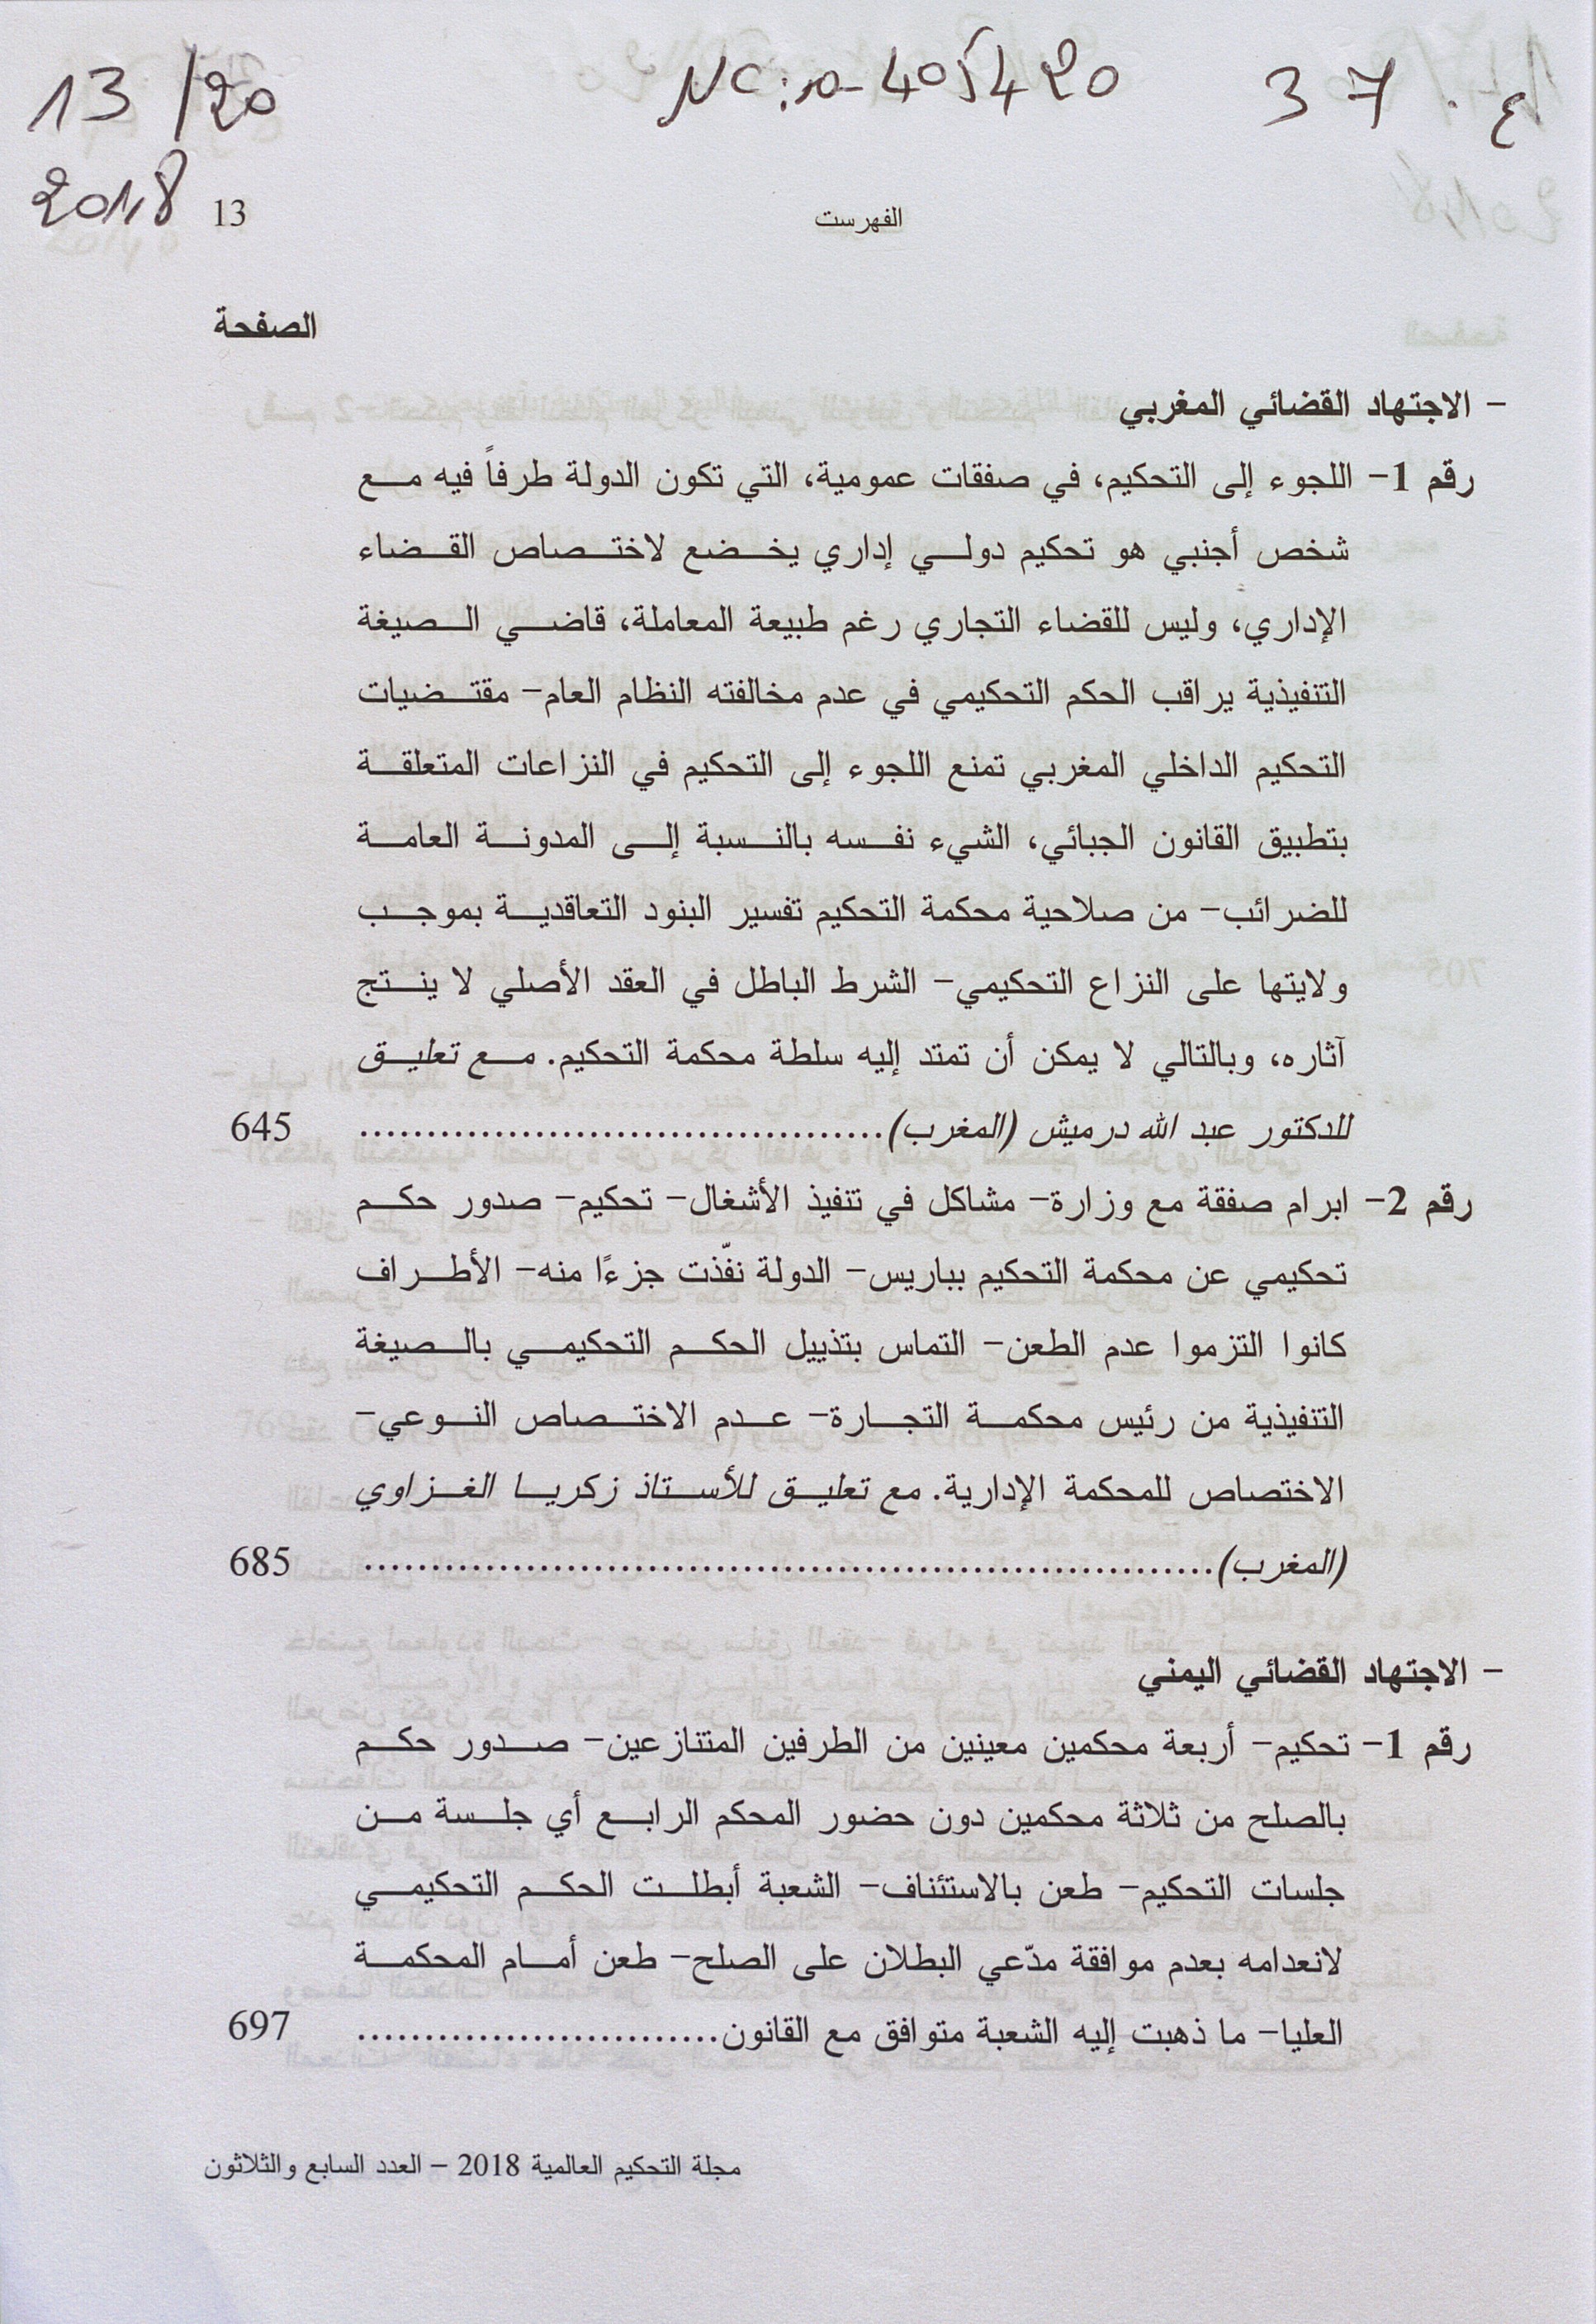 13 /20
405420
37 ع.
2018
13
الفهرست
الصفحة
- الاجتهاد القضائي المغربي
رقم 1- اللجوء إلى التحكيم، في صفقات عمومية، التي تكون الدولة طرفاً فيه مع
شخص أجنبي هو تحكيم دولي إداري يخضع لاختصاص القضاء
الإداري، وليس للقضاء التجاري رغم طبيعة المعاملة، قاضي الصيغة
التنفيذية يراقب الحكم التحكيمي في عدم مخالفته النظام العام- مقتضيات
التحكيم الداخلي المغربي تمنع اللجوء إلى التحكيم في النزاعات المتعلقة
بتطبيق القانون الجبائي، الشيء نفسه بالنسبة إلى المدونة العامة
للضرائب- من صلاحية محكمة التحكيم تفسير البنود التعاقدية بموجب
ولايتها على النزاع التحكيمي- الشرط الباطل في العقد الأصلي لا ينتج
آثاره، وبالتالي لا يمكن أن تمتد إليه سلطة محكمة التحكيم. مع تعليق
للدكتور عبد الله درميش (المغرب)....................................... 645
رقم 2- ابرام صفقة مع وزارة- مشاكل في تنفيذ الأشغال- تحكيم- صدور حكم
تحكيمي عن محكمة التحكيم بباريس- الدولة نفّذت جزءًا منه- الأطراف
كانوا التزموا عدم الطعن- التماس بتذييل الحكم التحكيمي بالصيغة
التنفيذية من رئيس محكمة التجارة- عدم الاختصاص النوعي-
الاختصاص للمحكمة الإدارية. مع تعليق للأستاذ زكريا الغزاوي
(المغرب)............................................................... 685
- الاجتهاد القضائي اليمني
رقم 1- تحكيم- أربعة محكمين معينين من الطرفين المتنازعين- صدور حكم
بالصلح من ثلاثة محكمين دون حضور المحكم الرابع أي جلسة من
جلسات التحكيم- طعن بالاستئناف- الشعبة أبطلت الحكم التحكيمي
لانعدامه بعدم موافقة مدّعي البطلان على الصلح- طعن أمام المحكمة
العليا- ما ذهبت إليه الشعبة متوافق مع القانون........................... 697
مجلة التحكيم العالمية 2018 – العدد السابع والثلاثون